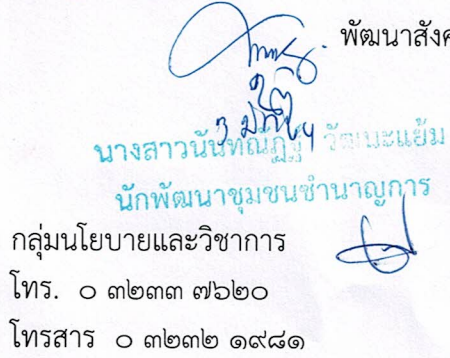 พัฒนาสังค
นางสาวนันทณัฏฐ์ วัฒนะแย้ม
นักพัฒนาชุมชนชำนาญการ
กลุ่มนโยบายและวิชาการ
โทร. ๐ ๓๒๓๓ ๗๖๒๐
โทรสาร ๐ ๓๒๓๒ ๑๙๘๑